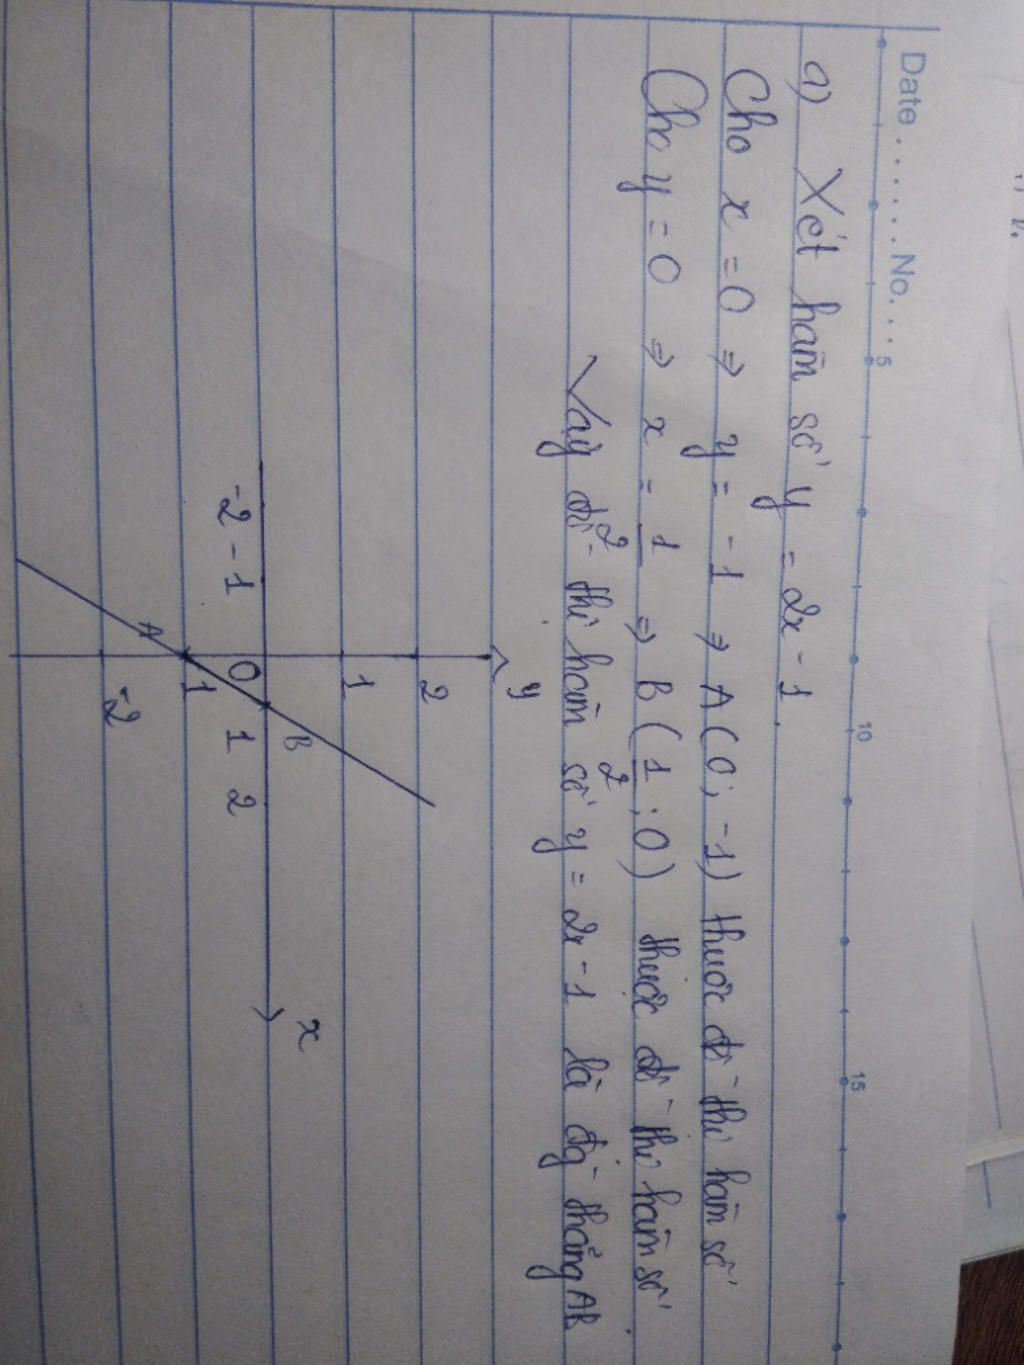 Date ....... No. ...
5 10 15
a) Xét hàm số y = 2x - 1.
Cho x = 0 ⇒ y = -1 ⇒ A(0; -1) thuộc đồ thị hàm số
Cho y = 0 ⇒ x = 1/2 ⇒ B(1/2; 0) thuộc đồ thị hàm số
Vậy đồ thị hàm số y = 2x - 1 là đg thẳng AB.
y
2
1
x
B
-2 -1 0 1 2
A
1
-2